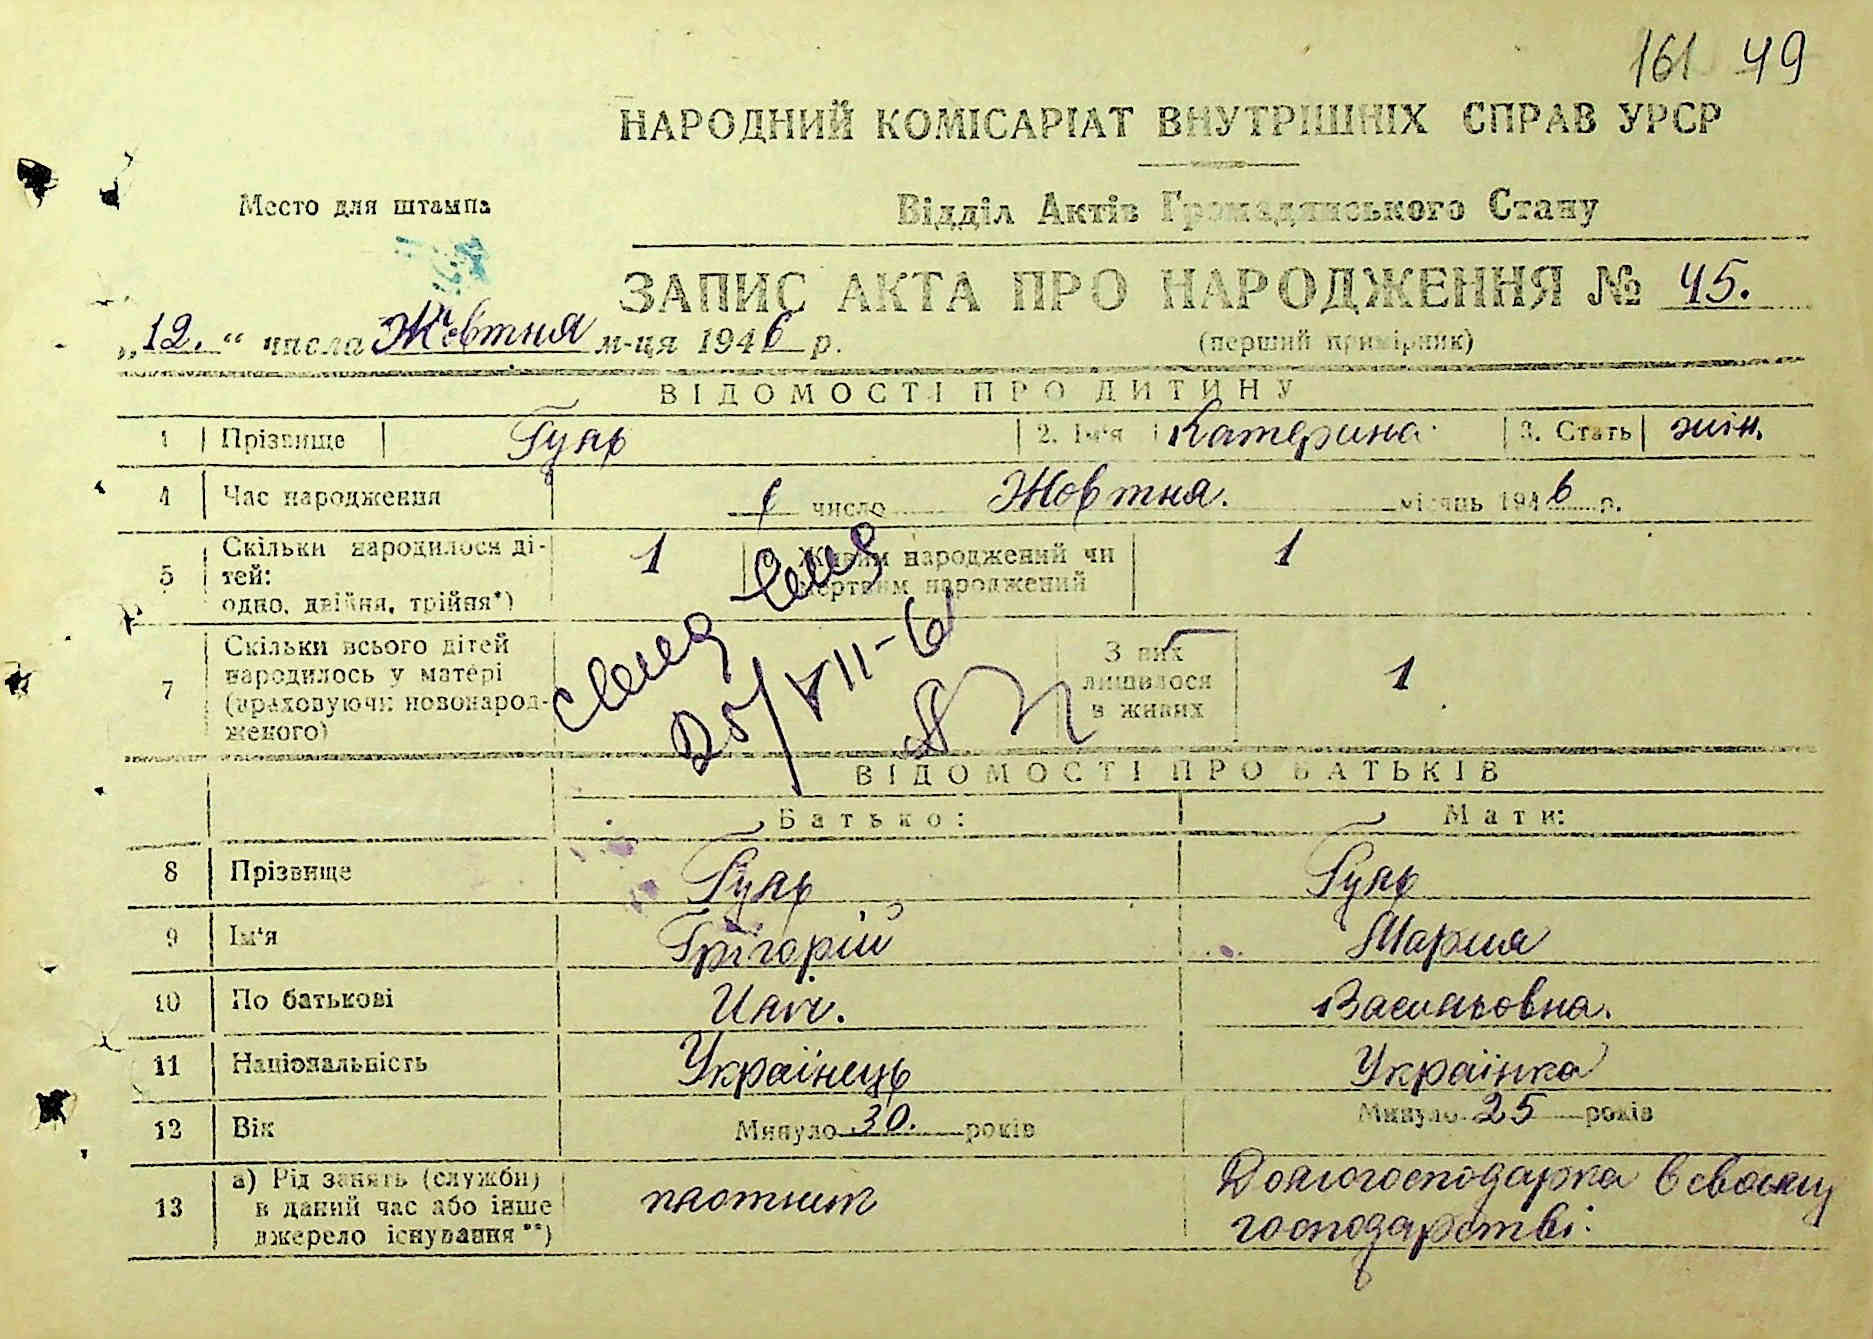 161 49
НАРОДНИЙ КОМІСАРІАТ ВНУТРІШНІХ СПРАВ УРСР
Место для штампа
Відділ Актів Громадянського Стану
ЗАПИС АКТА ПРО НАРОДЖЕННЯ № 45.
„12.“ числа Жовтня м-ця 1946 р.
(перший примірник)
ВІДОМОСТІ ПРО ДИТИНУ
1 Прізвище 2. Ім'я Катерина 3. Стать жін.
4 Час народження число Жовтня. місяць 1946 р.
5 Скільки народилося ді-
тей:
одно, двійня, трійня*) 1 Живим народжений чи
мертвим народжений 1
7 Скільки всього дітей
народилось у матері
(враховуючи новонарод-
женого)
З них
лишилося
в живих 1
25/VII-61
ВІДОМОСТІ ПРО БАТЬКІВ
Батько: Мати:
8 Прізвище
9 Ім'я Григорій Мария
10 По батькові Ілліч. Васильовна.
11 Національність Українець Українка
12 Вік Минуло 30. років Минуло 25 років
13 а) Рід занять (служби)
в даний час або інше
джерело існування**)
плотник
Домогосподарка в своєму
господарстві.